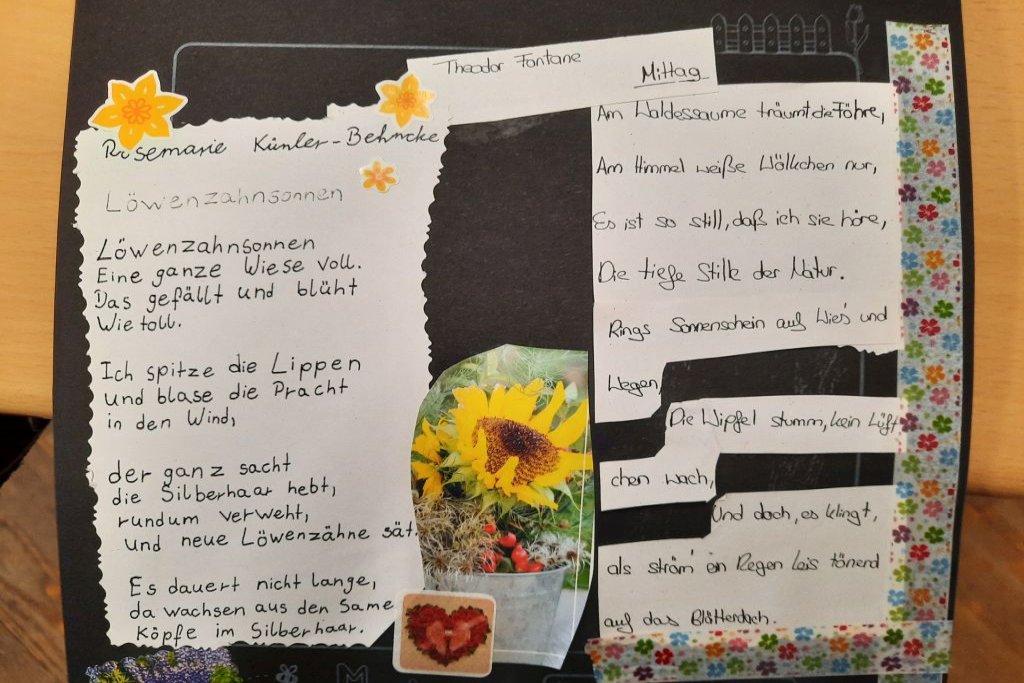 Rosemarie Künler-Behncke
Löwenzahnsonnen
Löwenzahnsonnen
Eine ganze Wiese voll.
Das gefällt und blüht
Wie toll.
Ich spitze die Lippen
und blase die Pracht
in den Wind,
der ganz sacht
die Silberhaar hebt,
rundum verweht,
und neue Löwenzähne sät.
Es dauert nicht lange,
da wachsen aus den Same
Köpfe im Silberhaar.
Theodor Fontane
Mittag
Am Waldessaume träumt die Föhre,
Am Himmel weiße Wölkchen nur,
Es ist so still, daß ich sie höre,
Die tiefe Stille der Natur.
Rings Sonnenschein auf Wies' und
Wegen,
Die Wipfel stumm, kein Lüft
chen wach,
Und doch, es klingt,
als ström' ein Regen leis tönend
auf das Blätterdach.
M